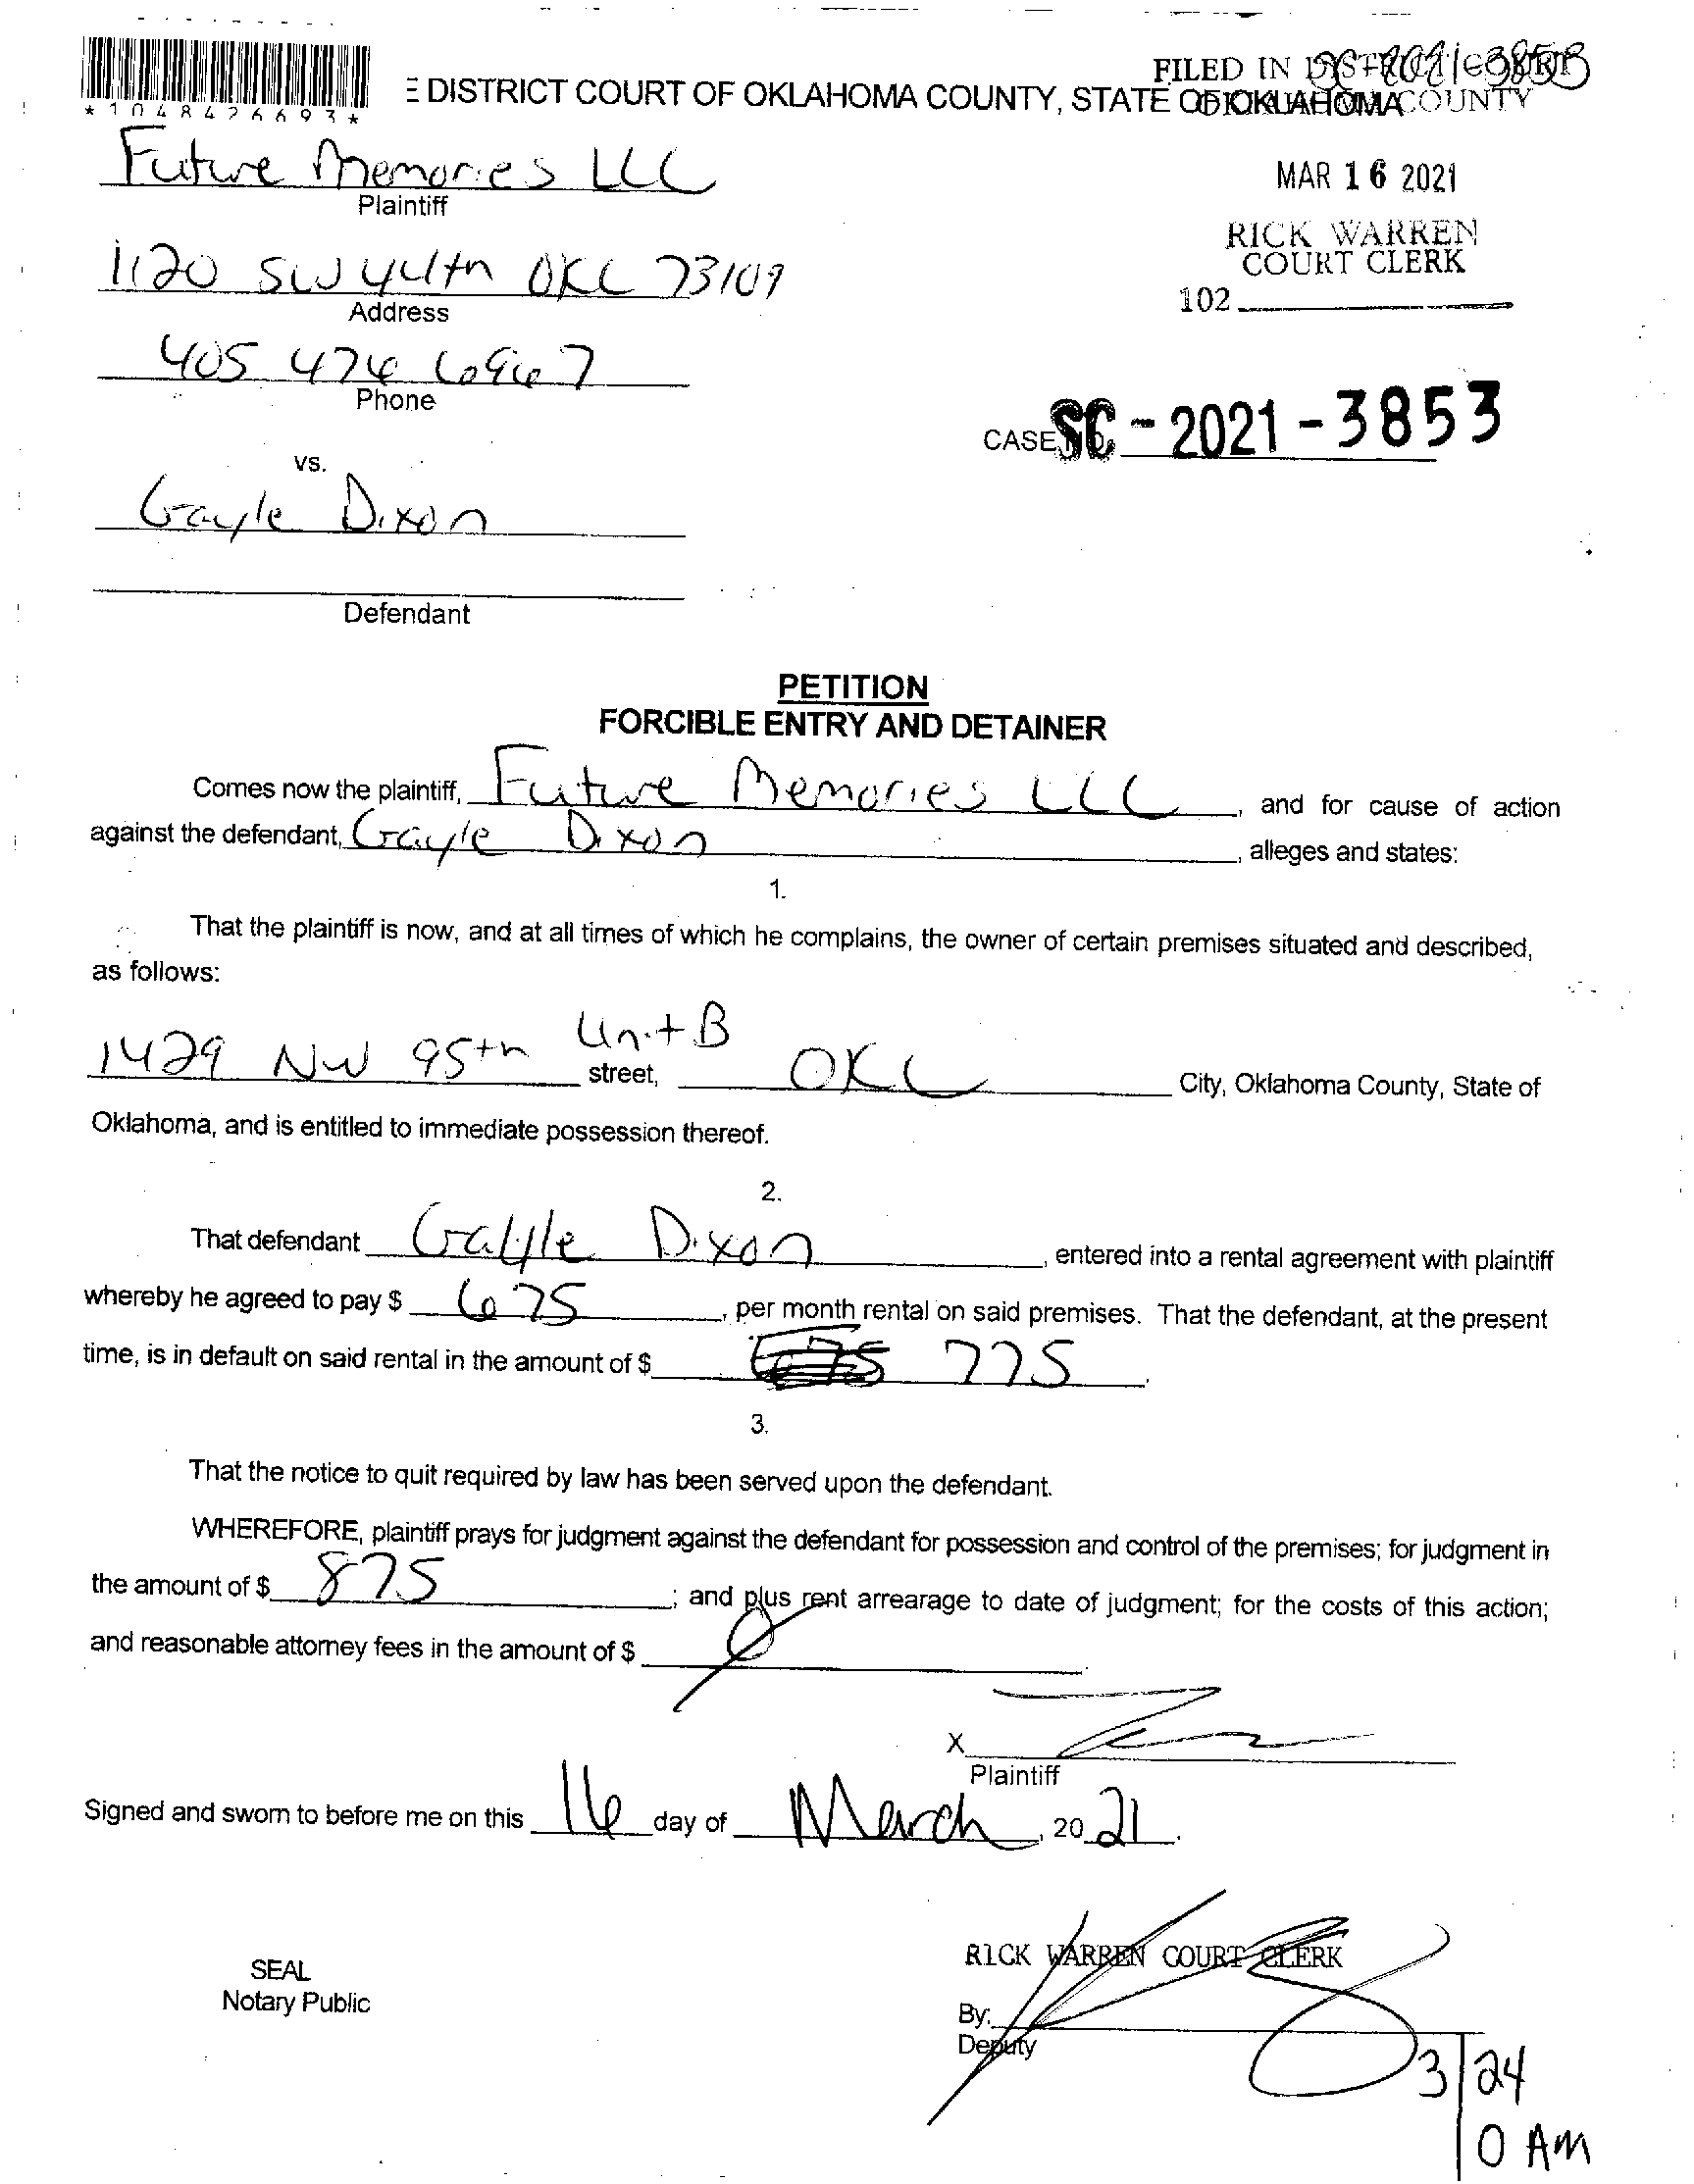 *1048426693*
E DISTRICT COURT OF OKLAHOMA COUNTY, STATE OF OKLAHOMA
FILED IN DISTRICT COURT
OKLAHOMA COUNTY
SC-2021-3853
Future Memories LLC
Plaintiff
MAR 16 2021
RICK WARREN
COURT CLERK
102
1120 SW 44th OKC 73109
Address
405 474 6967
Phone
CASE NO. SC-2021-3853
vs.
Gayle Dixon
Defendant
PETITION
FORCIBLE ENTRY AND DETAINER
Comes now the plaintiff, Future Memories LLC, and for cause of action
against the defendant, Gayle Dixon, alleges and states:
1.
That the plaintiff is now, and at all times of which he complains, the owner of certain premises situated and described,
as follows:
1429 NW 95th Unit B street, OKC City, Oklahoma County, State of
Oklahoma, and is entitled to immediate possession thereof.
2.
That defendant Gayle Dixon, entered into a rental agreement with plaintiff
whereby he agreed to pay $ 675, per month rental on said premises. That the defendant, at the present
time, is in default on said rental in the amount of $ 775.
3.
That the notice to quit required by law has been served upon the defendant.
WHEREFORE, plaintiff prays for judgment against the defendant for possession and control of the premises; for judgment in
the amount of $ 875; and plus rent arrearage to date of judgment; for the costs of this action;
and reasonable attorney fees in the amount of $ Ø.
X
Plaintiff
Signed and sworn to before me on this 16 day of March, 20 21.
RICK WARREN COURT CLERK
SEAL
Notary Public
By:
Deputy
3/24
0 AM